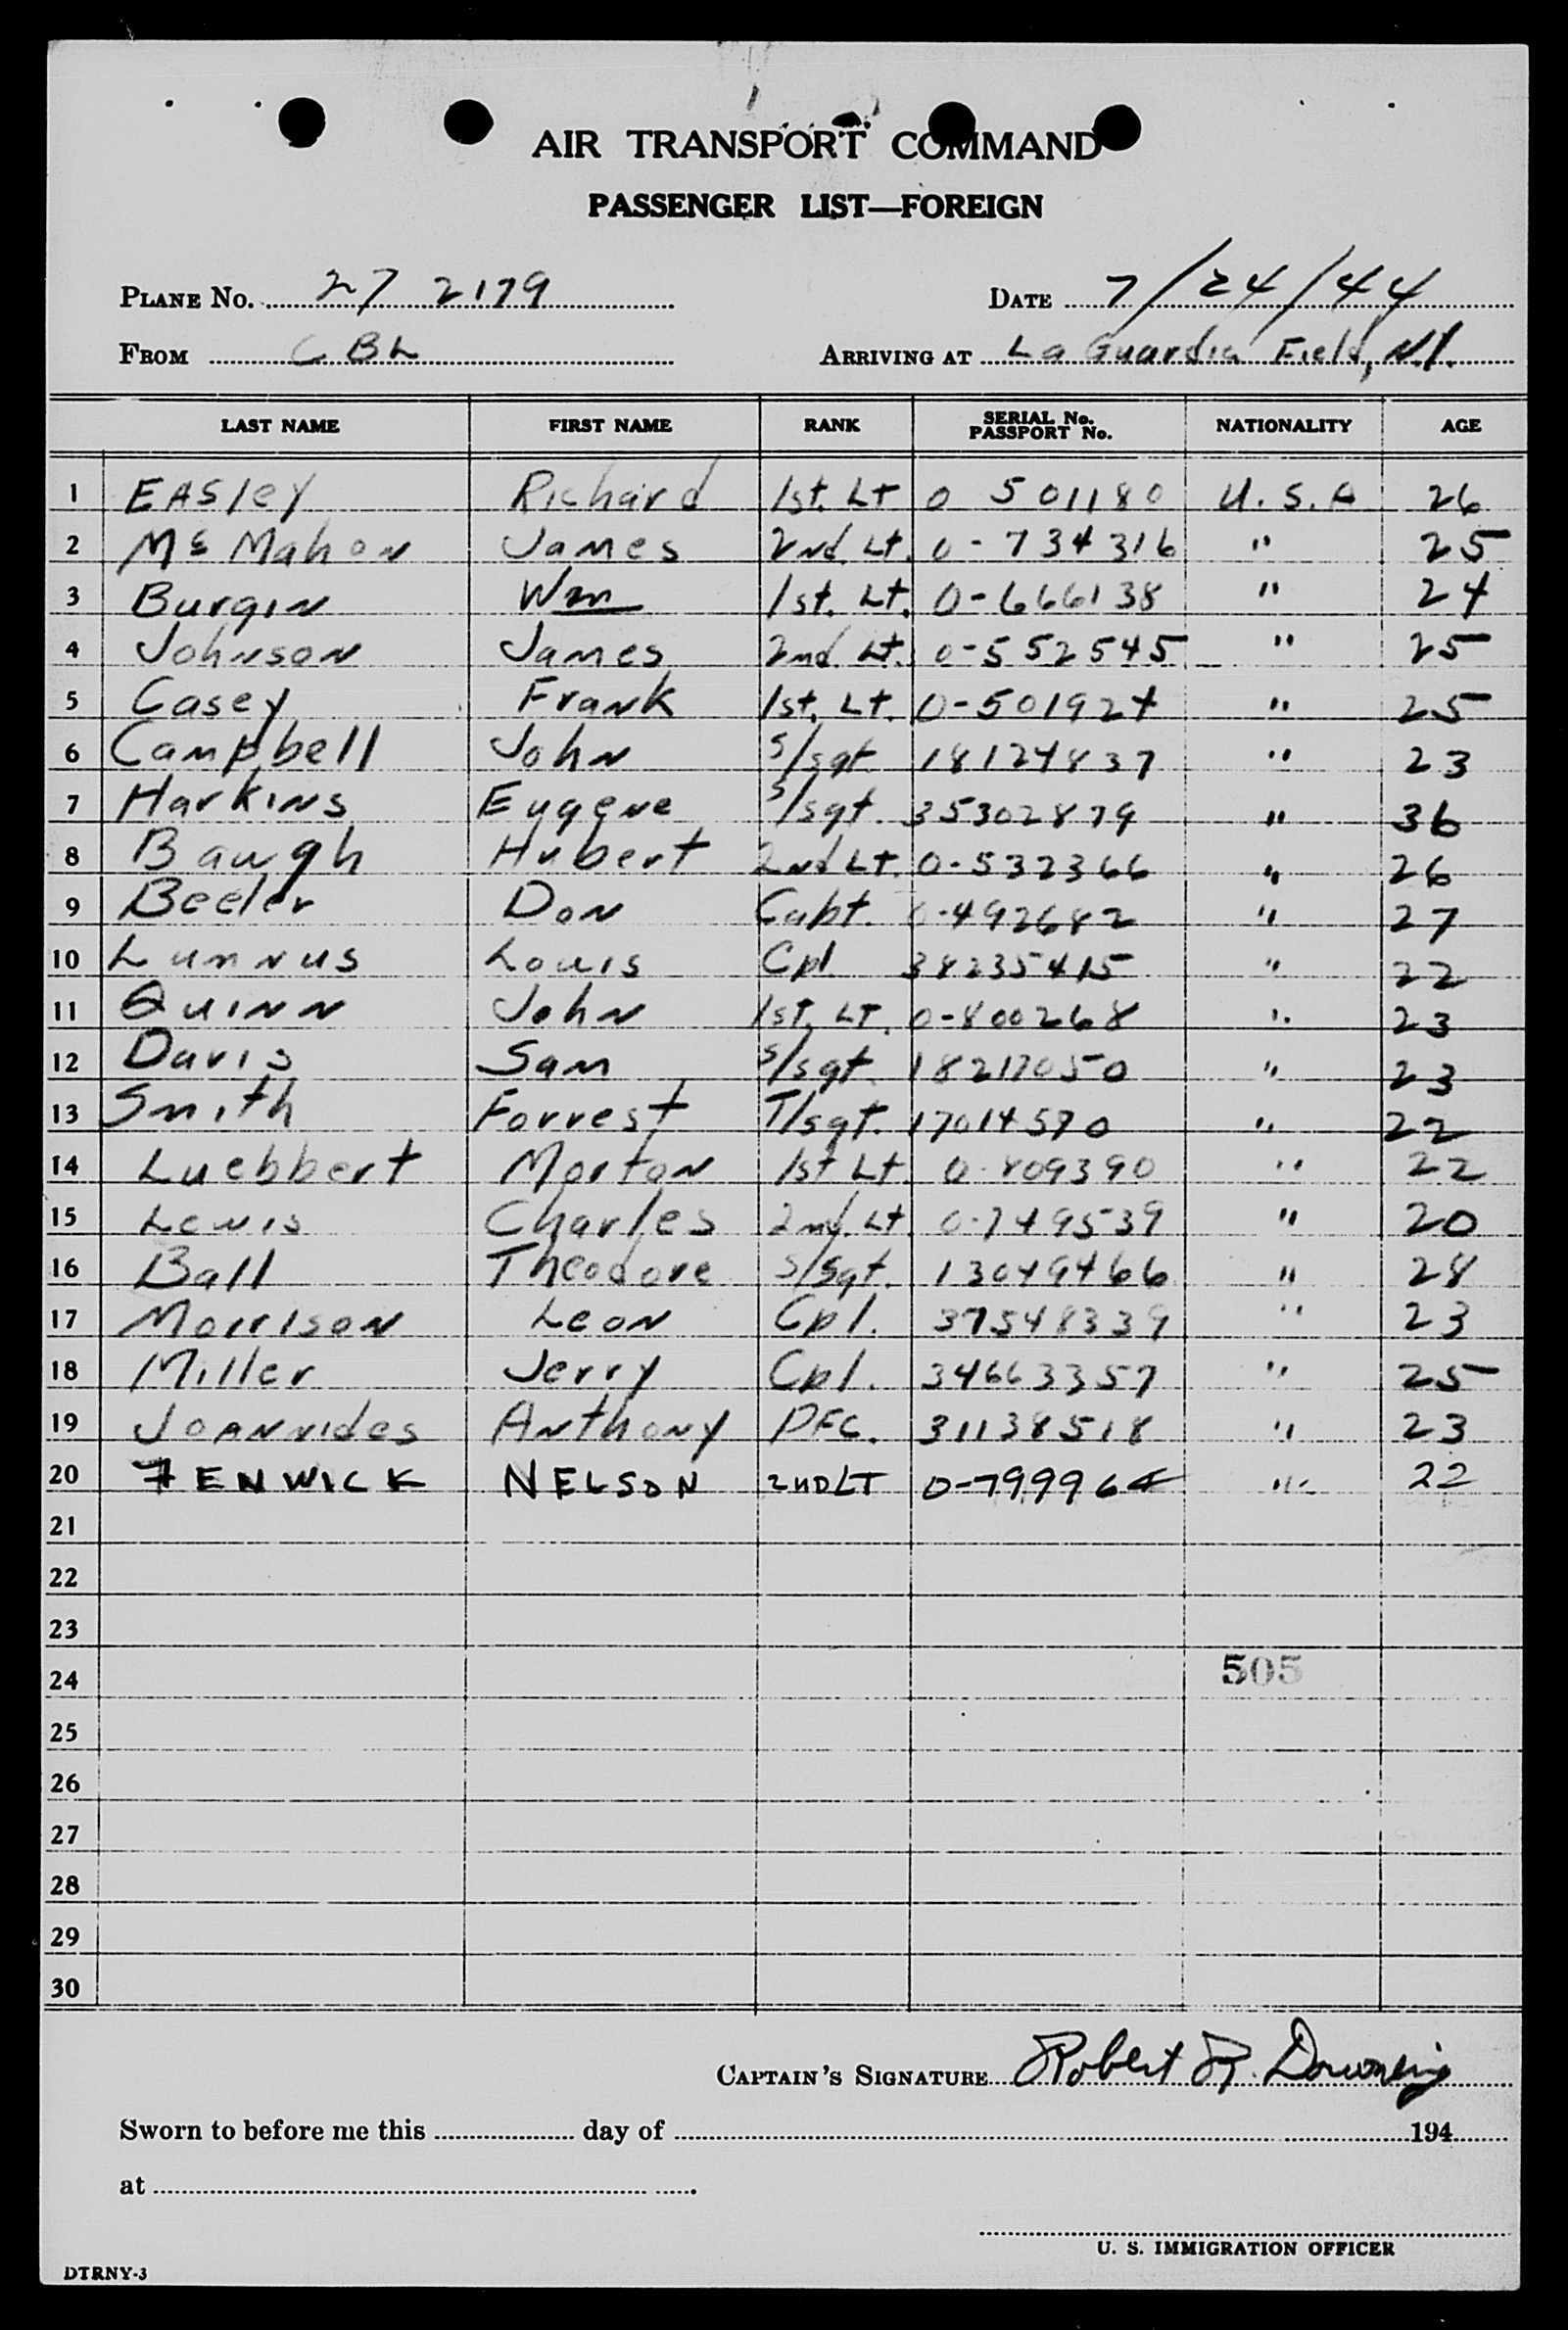 AIR TRANSPORT COMMAND
PASSENGER LIST—FOREIGN
PLANE No. 27 2179 DATE 7/24/44
FROM CBL ARRIVING AT La Guardia Field, N.Y.
LAST NAME FIRST NAME RANK SERIAL No. PASSPORT No. NATIONALITY AGE
1 EASley Richard 1st. Lt 0 501180 U.S.A 26
2 Mc Mahon James 2nd. Lt. 0-734316 " 25
3 Burgin Wm 1st. Lt. 0-666138 " 24
4 Johnson James 2nd. Lt. 0-552545 " 25
5 Casey Frank 1st. Lt. 0-501924 " 25
6 Campbell John S/sgt. 18124837 " 23
7 Harkins Eugene S/sgt. 35302879 " 36
8 Baugh Hubert 2nd Lt. 0-532366 " 26
9 Beeler Don Capt. 0-492682 " 27
10 Lunnus Louis Cpl 38235415 " 22
11 Quinn John 1st. LT. 0-800268 " 23
12 Davis Sam S/sgt. 18217050 " 23
13 Smith Forrest T/sgt. 17014570 " 22
14 Luebbert Morton 1st Lt. 0-809390 " 22
15 Lewis Charles 2nd. Lt 0-749539 " 20
16 Ball Theodore S/Sgt. 13049466 " 28
17 Morrison Leon Cpl. 37548339 " 23
18 Miller Jerry Cpl. 34663357 " 25
19 JOANNides Anthony PFC. 31138518 " 23
20 FENWICK NELSON 2NDLT 0-799964 " 22
21
22
23
24 505
25
26
27
28
29
30
CAPTAIN'S SIGNATURE Robert R. Downing
Sworn to before me this day of 194
at
U. S. IMMIGRATION OFFICER
DTRNY-3